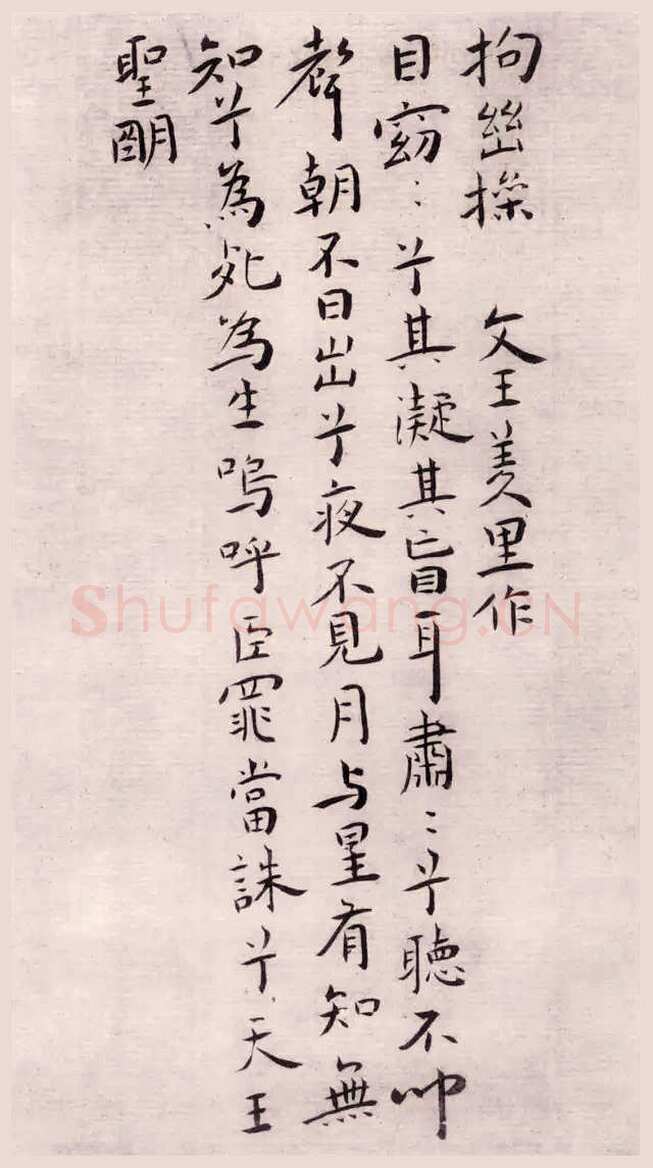 拘幽操 文王羑里作
目窈〻兮其凝其盲耳肅〻兮聽不聞
聲朝不日出兮夜不見月与星有知無
知兮為死為生嗚呼臣罪當誅兮天王
聖朙
Shufawang.CN